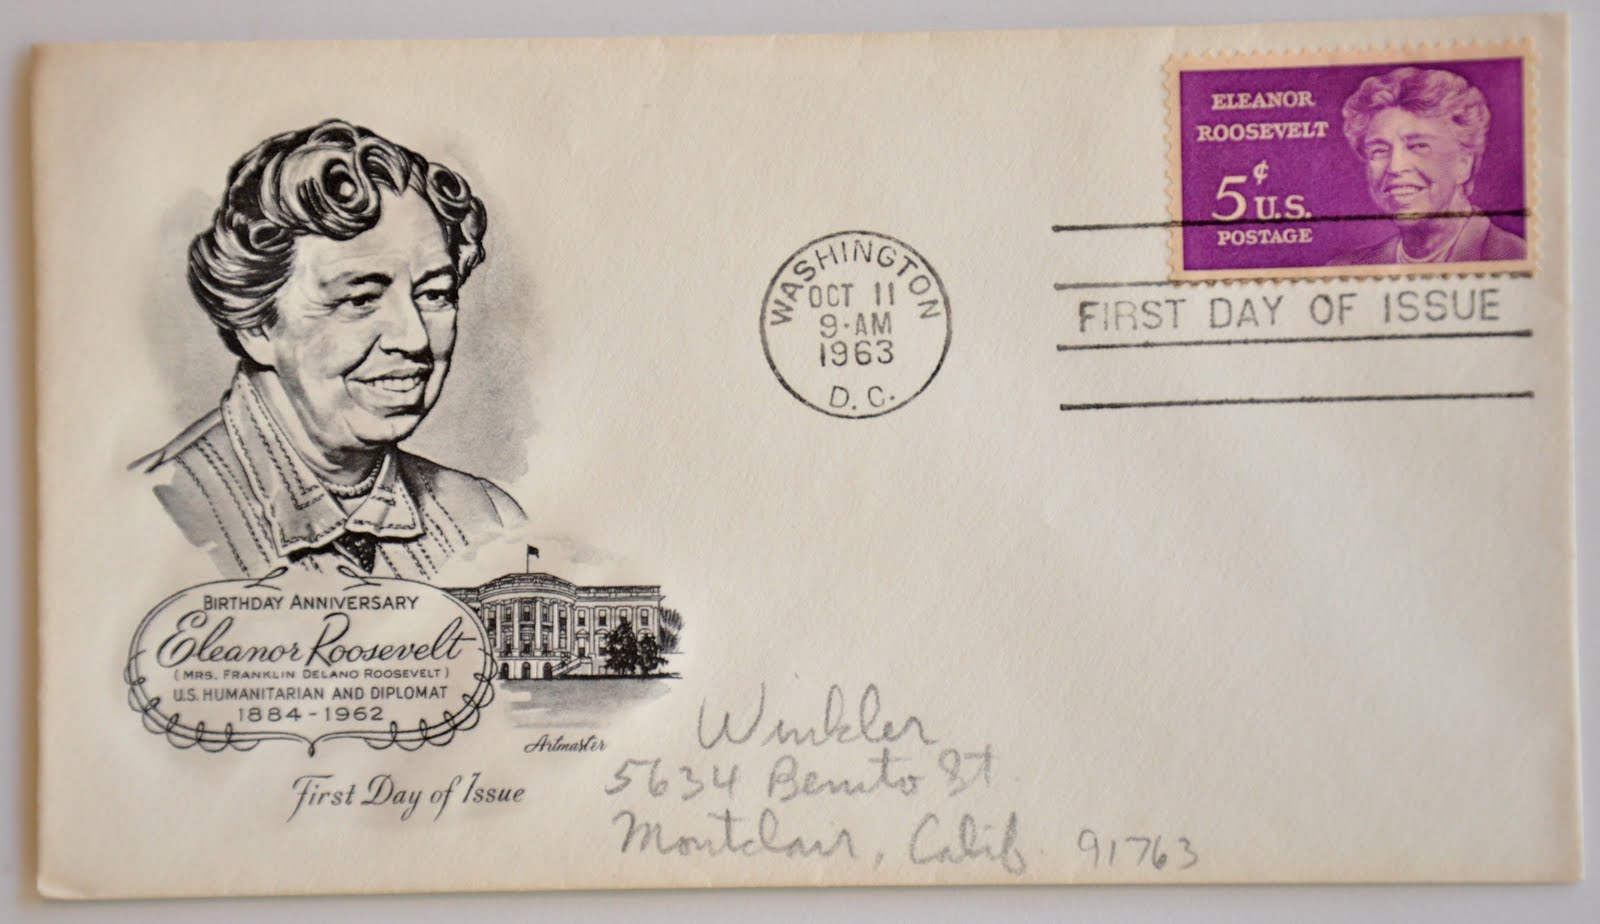 ELEANOR
ROOSEVELT
5¢ U.S.
POSTAGE
WASHINGTON
OCT 11
9-AM
1963
D. C.
FIRST DAY OF ISSUE
BIRTHDAY ANNIVERSARY
Eleanor Roosevelt
(MRS. FRANKLIN DELANO ROOSEVELT)
U.S. HUMANITARIAN AND DIPLOMAT
1884-1962
Artmaster
First Day of Issue
Winkler
5634 Benito St.
Montclair, Calif. 91763